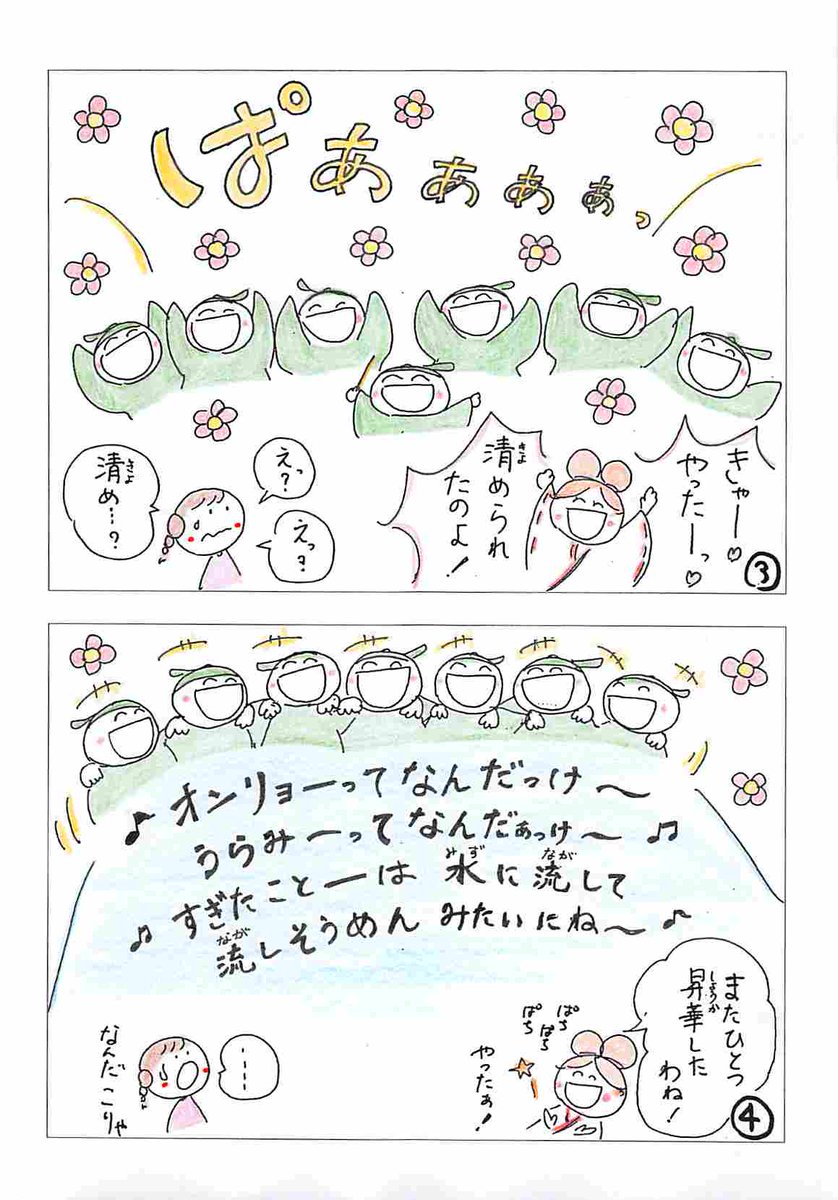 ぱぁぁぁぁっ
きゃー♡
やったーっ♡
清められ
きよ
たのよ!
えっ?
えっ?
清め…?
きよ
③
♪オンリョーってなんだっけ〜
うらみーってなんだぁっけ〜♫
すぎたことーは水に流して
みず
なが
♫流しそうめんみたいにね〜♪
なが
またひとつ
昇華した
しょうか
わね!
ぱち
ぱち
ぱち
やったぁ!
……
なんだこりゃ
④